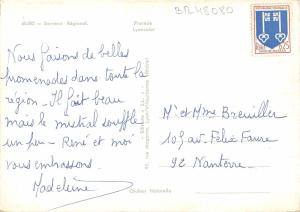 BR48080
Nous faisons de belles
promenades dans toute la
région - Il fait beau
mais le mistral souffle
un peu - René et moi
vous embrassons.
Madeleine
Mr et Mme Breuiller
109 av. Félix Faure
92 Nanterre
Couleur Naturelle